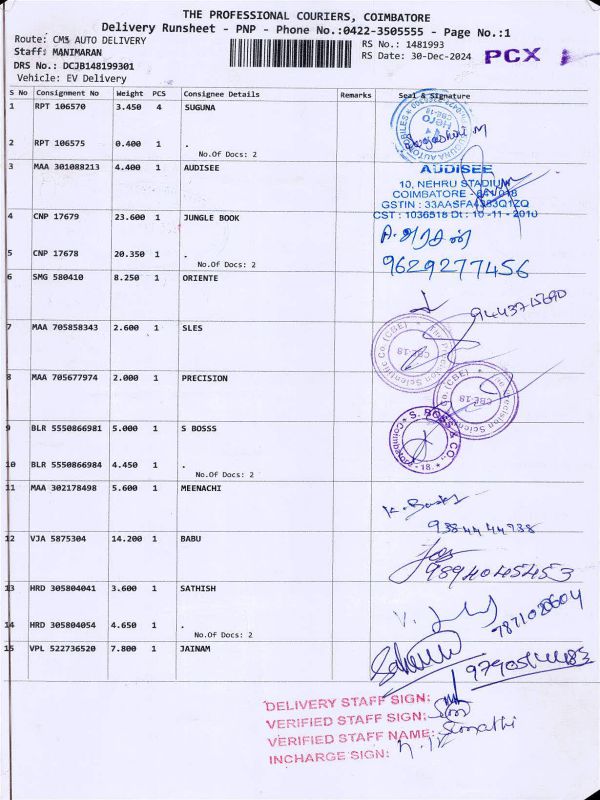 THE PROFESSIONAL COURIERS, COIMBATORE
Delivery Runsheet - PNP - Phone No.:0422-3505555 - Page No.:1
Route: CM5 AUTO DELIVERY
RS No.: 1481993
Staff: MANIMARAN
RS Date: 30-Dec-2024
PCX
DRS No.: DCJB148199301
Vehicle: EV Delivery
S No Consignment No Weight PCS Consignee Details Remarks Seal & Signature
1 RPT 106570 3.450 4 SUGUNA
2 RPT 106575 0.400 1 .
No.Of Docs: 2
3 MAA 301088213 4.400 1 AUDISEE
AUDISEE
10, NEHRU STADIUM
COIMBATORE - 641 018
GSTIN : 33AASFA4383Q1ZQ
CST : 1036518 Dt : 10 -11 - 2010
4 CNP 17679 23.600 1 JUNGLE BOOK
5 CNP 17678 20.350 1 .
No.Of Docs: 2
9629277456
6 SMG 580410 8.250 1 ORIENTE
7 MAA 705858343 2.600 1 SLES
8 MAA 705677974 2.000 1 PRECISION
The Precision Scientific Co. (CBE)
CBE-18
The Precision Scientific Co. (CBE)
CBE-18
9 BLR 5550866981 5.000 1 S BOSSS
S. BOSS & CO.,
- 18.
10 BLR 5550866984 4.450 1 .
No.Of Docs: 2
11 MAA 302178498 5.600 1 MEENACHI
12 VJA 5875304 14.200 1 BABU
9894045453
13 HRD 305804041 3.600 1 SATHISH
14 HRD 305804054 4.650 1 .
No.Of Docs: 2
15 VPL 522736520 7.800 1 JAINAM
DELIVERY STAFF SIGN:
VERIFIED STAFF SIGN:
VERIFIED STAFF NAME:
INCHARGE SIGN: